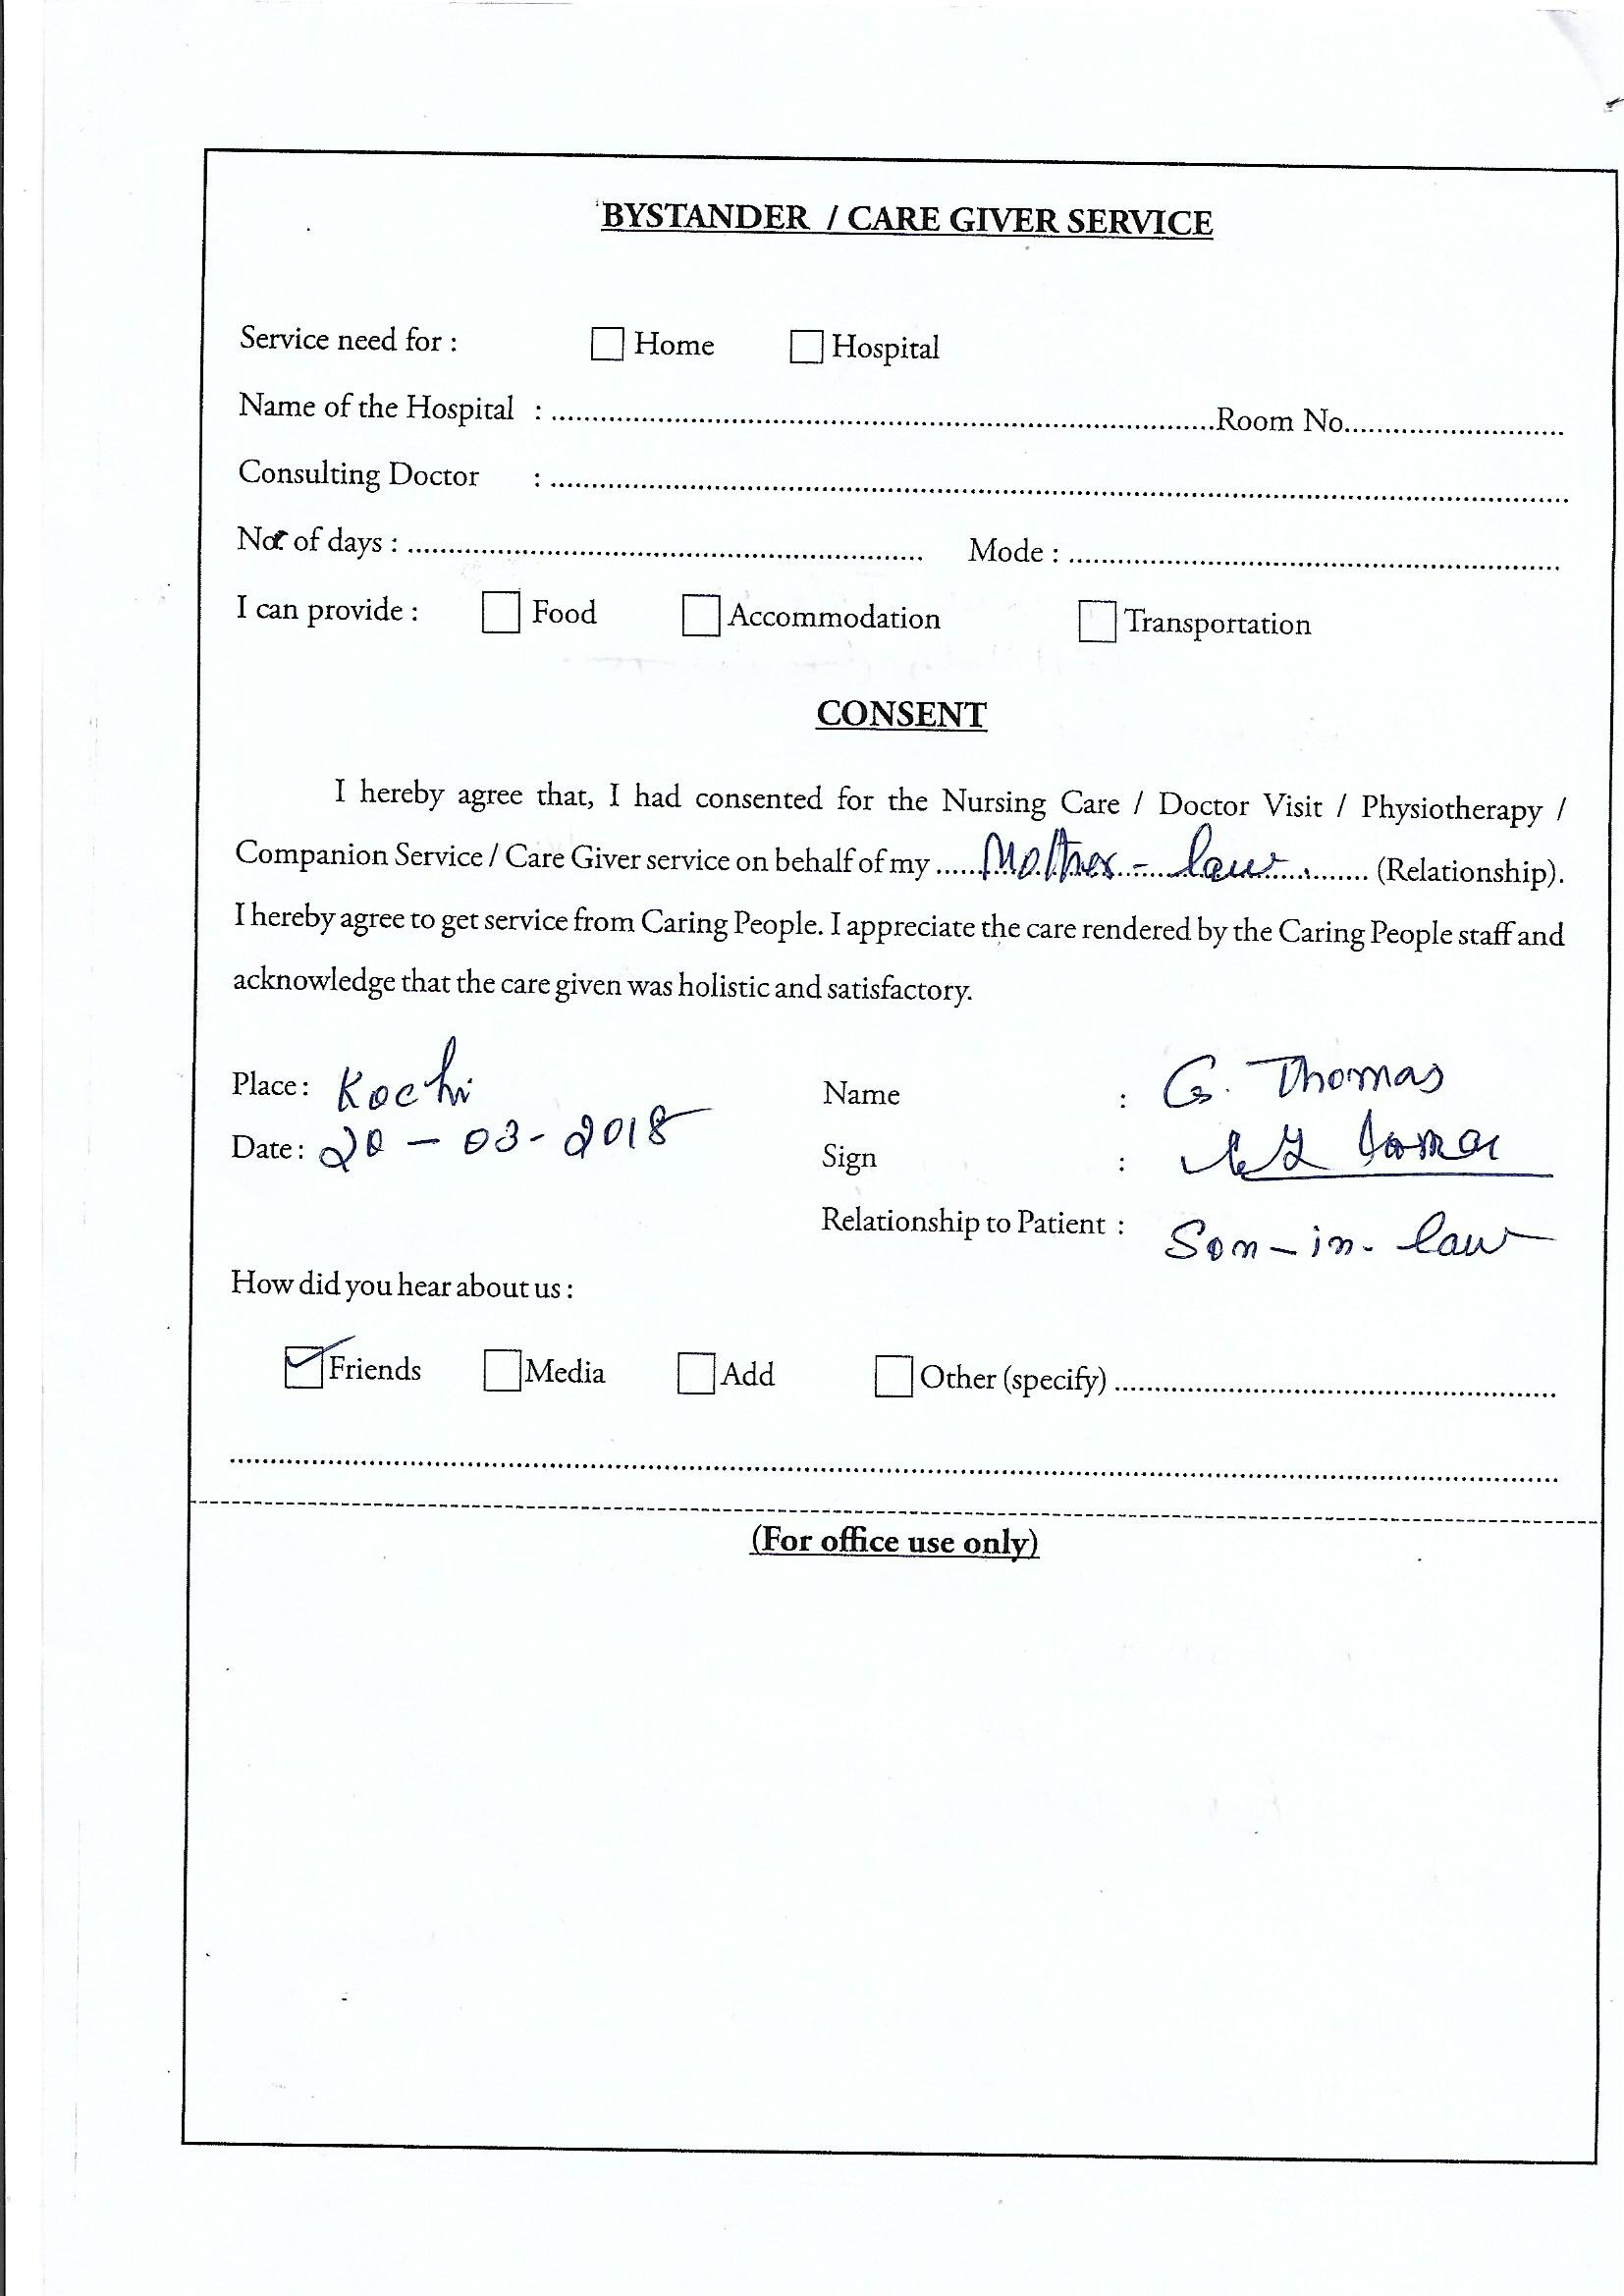 BYSTANDER / CARE GIVER SERVICE
Service need for : Home Hospital
Name of the Hospital : ........................................Room No.........................
Consulting Doctor : ................................................................
No. of days : ........................................ Mode : ........................................
I can provide : Food Accommodation Transportation
CONSENT
I hereby agree that, I had consented for the Nursing Care / Doctor Visit / Physiotherapy /
Companion Service / Care Giver service on behalf of my ......Mother - law............ (Relationship).
I hereby agree to get service from Caring People. I appreciate the care rendered by the Caring People staff and
acknowledge that the care given was holistic and satisfactory.
Place : Kochi Name : G. Thomas
Date : 20 - 03 - 2018 Sign :
Relationship to Patient : Son - in - law
How did you hear about us :
Friends Media Add Other (specify) ........................................
(For office use only)